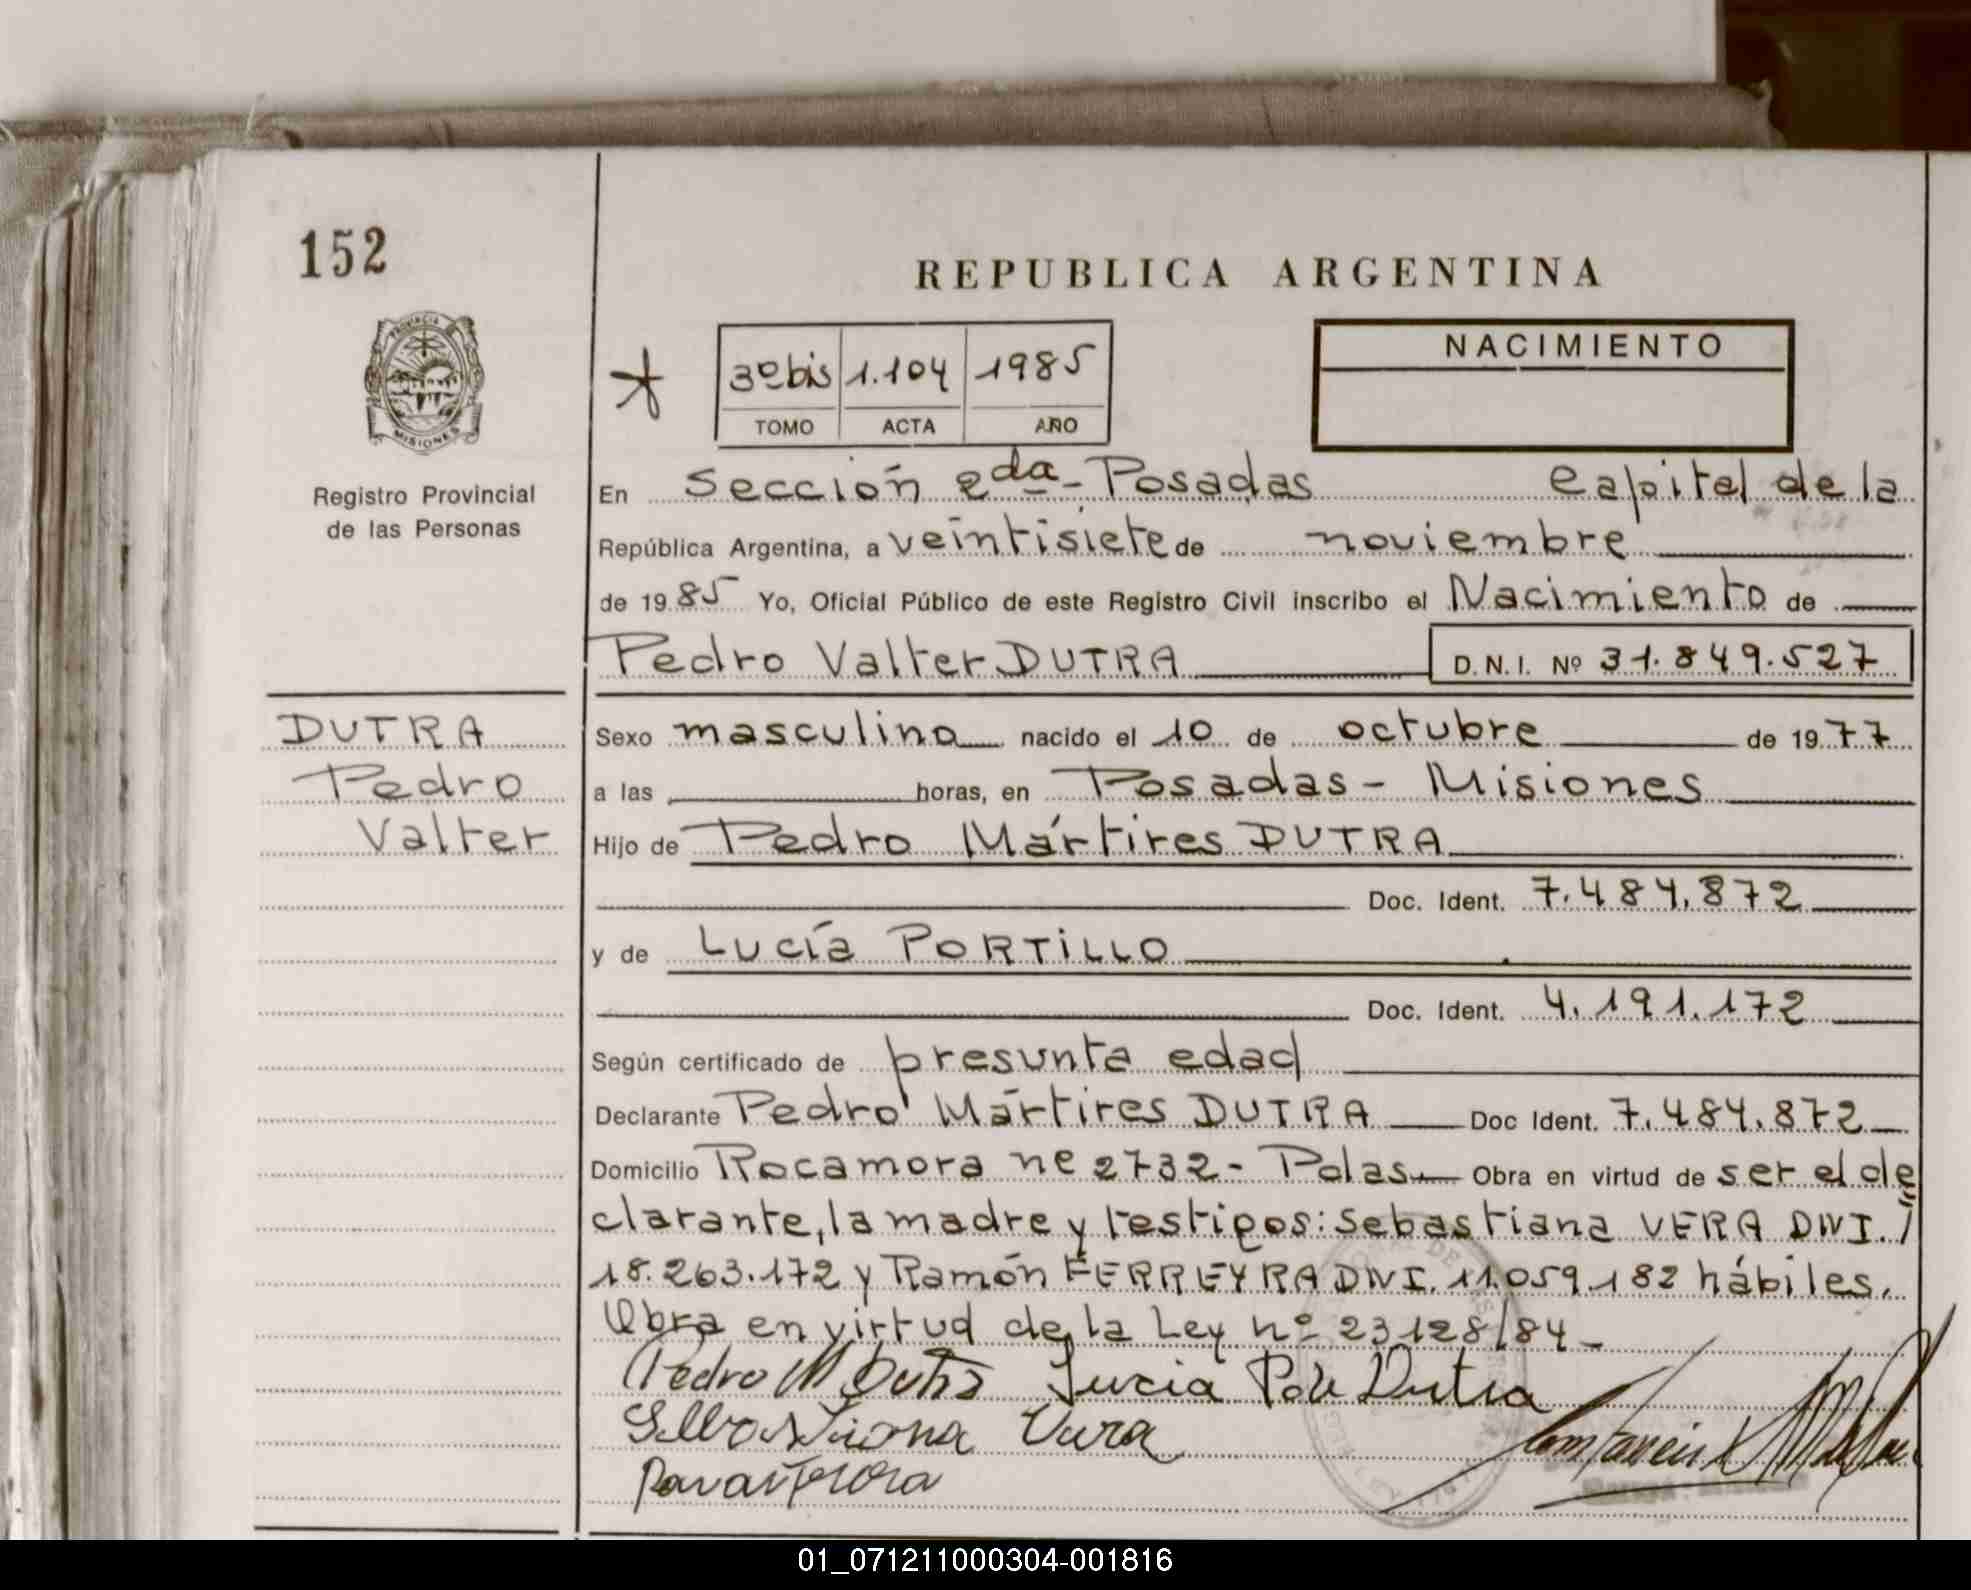 152
REPUBLICA ARGENTINA
PROVINCIA DE
MISIONES
Registro Provincial
de las Personas
3º bis 1.104 1985
TOMO ACTA AÑO
NACIMIENTO
En Sección 2da - Posadas Capital de la
República Argentina, a veintisiete de noviembre
de 1985 Yo, Oficial Público de este Registro Civil inscribo el Nacimiento de
Pedro Valter DUTRA D.N.I. Nº 31.849.527
DUTRA
Pedro
Valter
Sexo masculino nacido el 10 de octubre de 1977
a las horas, en Posadas - Misiones
Hijo de Pedro Mártires DUTRA
Doc. Ident. 7.484.872
y de Lucía PORTILLO
Doc. Ident. 4.191.172
Según certificado de presunta edad
Declarante Pedro Mártires DUTRA Doc Ident. 7.484.872
Domicilio Rocamora nº 2732 - Pdas Obra en virtud de ser el de
clarante, la madre y testigos: Sebastiana VERA DNI.
18.263.172 y Ramón FERREYRA DNI. 11.059.182 hábiles.
Obra en virtud de la Ley nº 23128/84 -
Pedro M Dutra Lucia P de Dutra
Sebastiana Vera
01_071211000304-001816